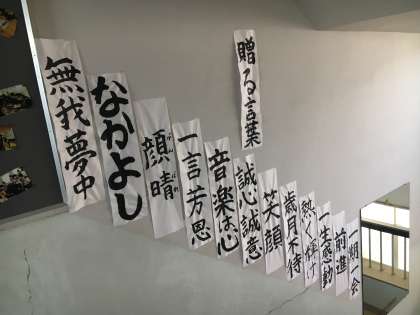 贈る言葉
無我夢中
なかよし
顔晴
がんばれ
一言芳恩
音楽は心
誠心誠意
笑顔
歳月不待
熱く輝け
一生感動
前進
一期一会